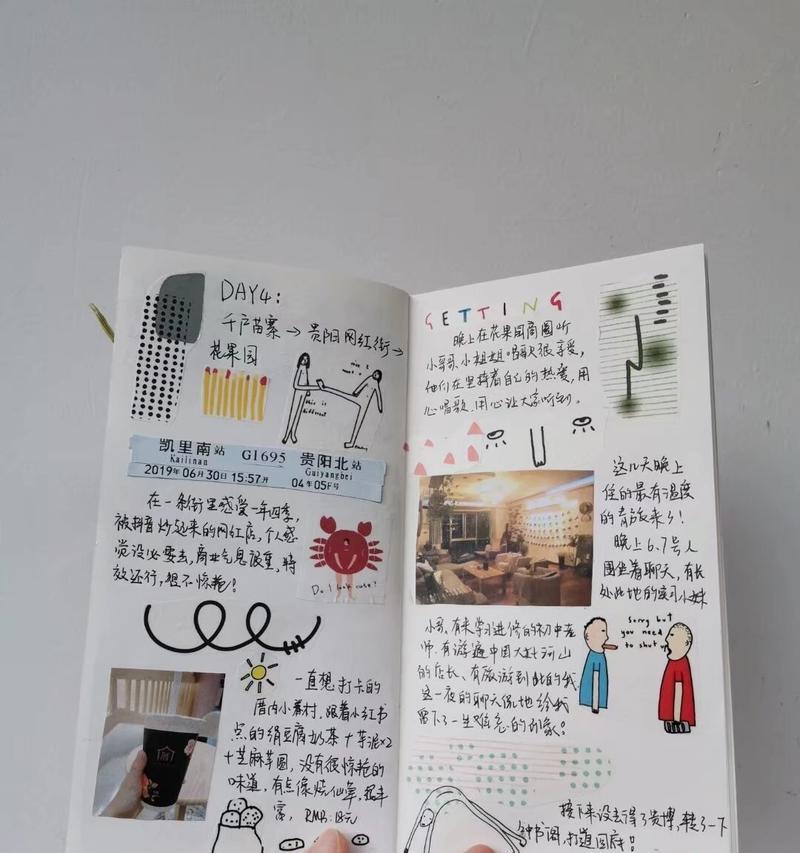 DAY4:
千户苗寨 → 贵阳网红街 →
花果园
nice to
meet u
this is
different
凯里南站 G1695 贵阳北站
Kailinan Guiyangbei
2019年06月30日15:57开 04车05F号
在一条街里感受一年四季,
被抖音炒起来的网红店,个人感
觉没必要去,商业气息很重,特
效还行,但不惊艳!
Do I look cute?
一直想打卡的
厝内小眷村,跟着小红书
点的绢豆腐奶茶+芋泥x2
+芝麻芋圆,没有很惊艳的
味道,有点像烧仙草,挺丰
富, RMB:18元
GETTING
晚上在花果园商圈听
小哥哥、小姐姐唱歌很享受,
他们在坚持着自己的热爱,用
心唱歌,用心让大家听到.
这几天晚上
住的最有温度
的青旅来了!
晚上6.7号人
围坐着聊天,有长
处此地的实习小妹
小哥、有来学习进修的初中老
师.有游遍中国大好河山
的店长、有旅游到此的我.
这一夜的聊天依他给我
留下了一生难忘的印象!
Sorry but
you need
to shut up
接下来没去得了贵博,转了一下
钟书阁,打道回府!